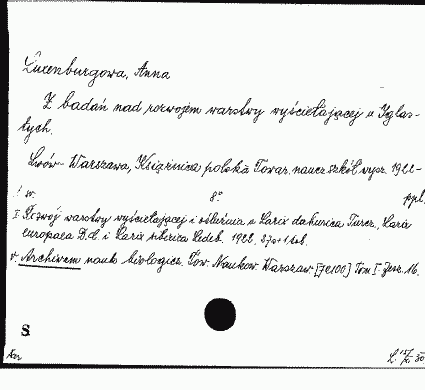 Luxenburgowa, Anna
Z badań nad rozwojem warstwy wyścielającej u Iglas-
tych.
Lwów-Warszawa, Książnica polska Towarz. naucz. szkół wyż. 1922-
1 w. 8° ppl.
I Rozwój warstwy wyścielającej i ośluźnia u Larix dahurica Turcz. Larix
europaea D.C. i Larix sibirica Ledeb. 1922. 27 s + 1 tab.
v. Archiwum nauk biologicz. Tow. Naukow. Warszaw. [72100] Tom I. Zesz. 16.
S